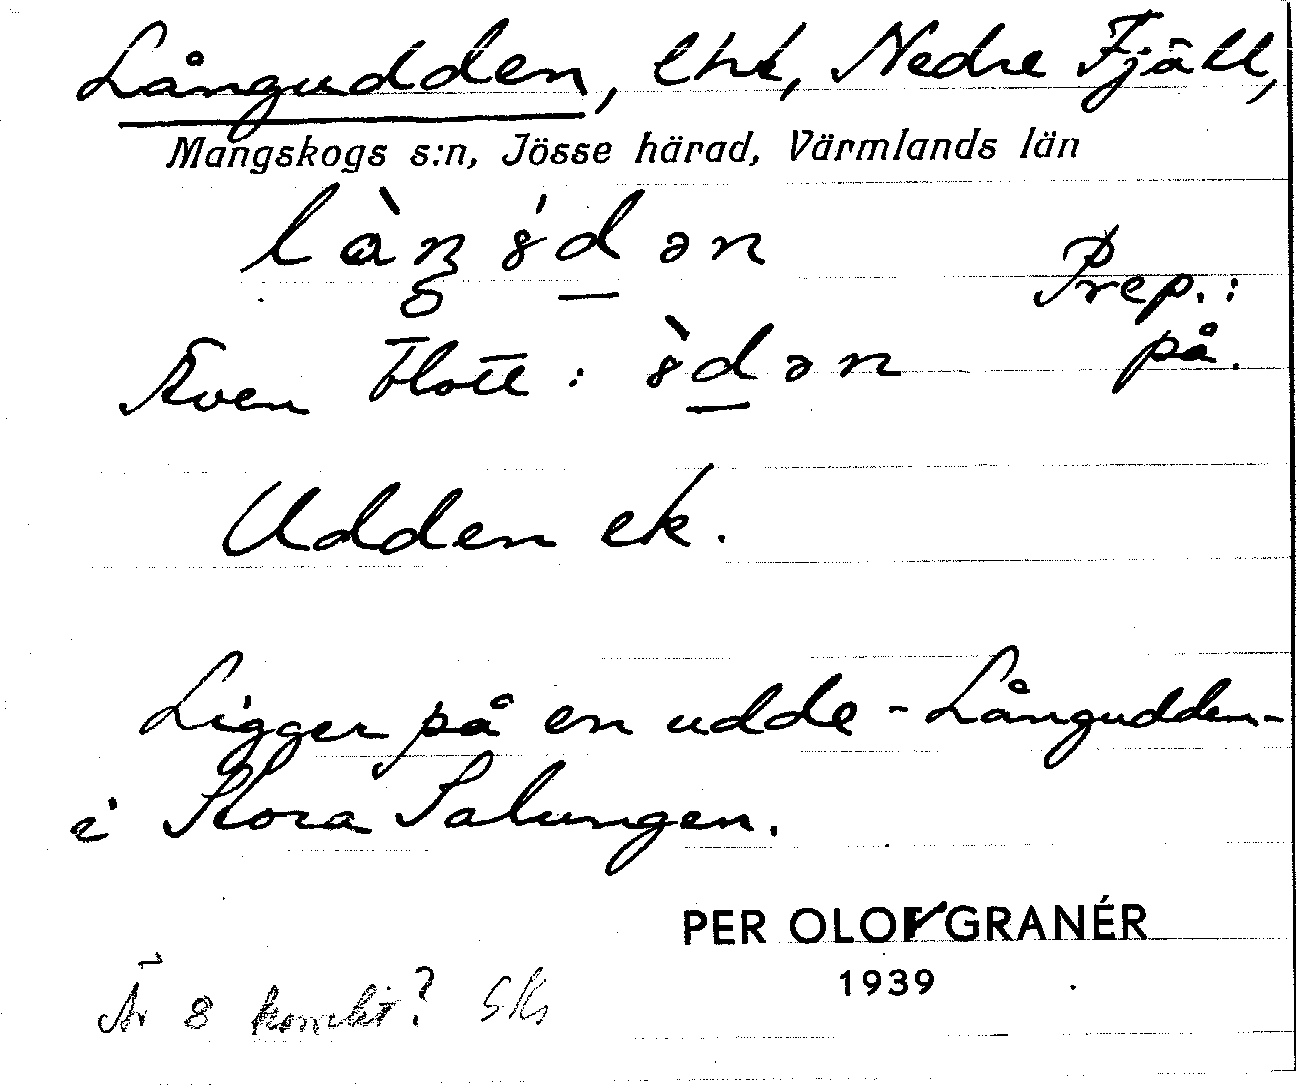 Långudden, lht, Nedre Fjäll,
Mangskogs s:n, Jösse härad, Värmlands län
là̀ŋ 8́dən Prep.:
Även blott: 8̀dən på.
Udden ek.
Ligger på en udde - Långudden -
i Stora Salungen.
PER OLOF GRANÉR
1939
Är 8 korrekt? SKs